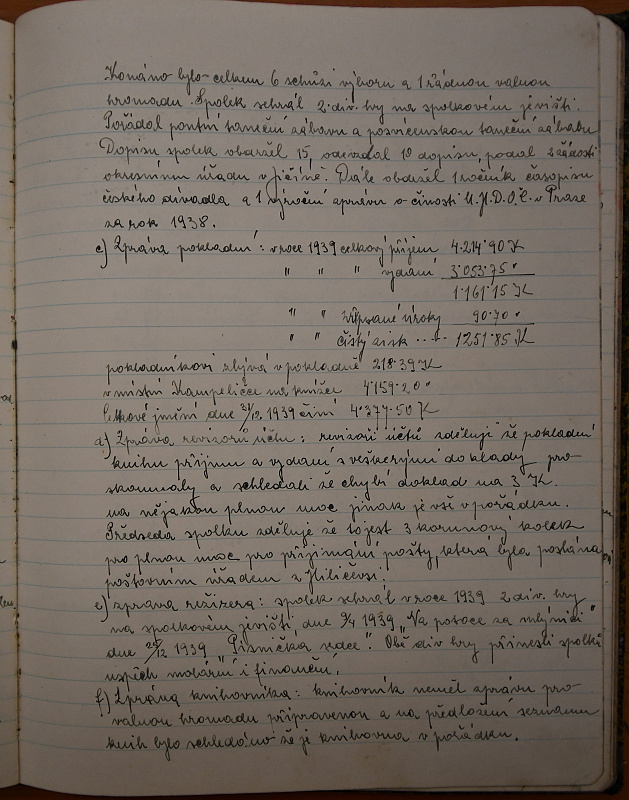 Konáno bylo celkem 6 schůzí výboru a 1 řádnou valnou
hromadu. Spolek sehrál 2 div. hry na spolkovém jevišti.
Pořádal pouťní taneční zábavu a posvícenskou taneční zábavu
Dopisů spolek obdržel 15, odevzdal 10 dopisů, podal 2 žádosti
okresnímu úřadu v Jičíně. Dále obdržel 1 ročník časopisu
českého divadla a 1 výroční zprávu o činosti Ú.M.D.O.Č. v Praze
za rok 1938.
c) Zpráva pokladní: v roce 1939 celkový příjem 4.214·90 K
" " " vydání 3·053·75 "
1·161·15 K
" " připsané úroky 90·70 "
" " čistý zisk .... 1251·85 K
pokladníkovi zbývá v pokladně 218·39 K
v místní Kampeličce na knížce 4·159·20 "
Celkové jmění dne 31/12 1939 činí 4·377·50 K
d) Zpráva revizorů účtů: revizoři účtů sdělují že pokladní
knihu příjmu a vydání s veškerými doklady pro-
skoumaly a schledali že chybí doklad na 3 K.
na nějakou plnou moc jinak je vše v pořádku.
Předseda spolku sděluje že to jest 3 korunový kolek
pro plnou moc pro přijímání pošty, která byla poslána
poštovním úřadem z
e) zpráva režizera: spolek sehrál v roce 1939 2 div. hry
na spolkovém jevišti dne 9/4 1939 „Na potoce za mlýnicí"
dne 25/12 1939 „Písnička srdce". Obě div. hry přinesli spolku
úspěch morální i finanční.
f) Zpráva knihovníka: knihovník neměl zprávu pro
valnou hromadu připravenou a na předložení seznamu
knih bylo schledáno že je knihovna v pořádku.